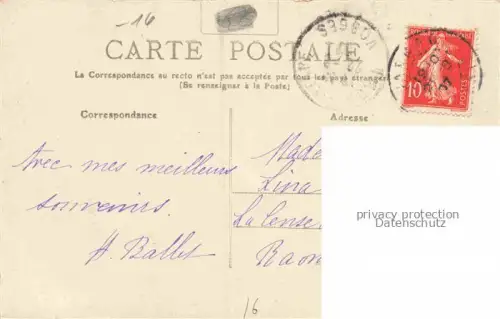 -16
CARTE POSTALE
La Correspondance au recto n'est pas acceptée par tous les pays étrangers
(Se renseigner à la Poste)
VOSGES
POSTES
10
Correspondance
Adresse
Avec mes meilleurs
souvenirs.
A. Ballet
Made
Lina
La Cense
Raon
privacy protection
Datenschutz
16